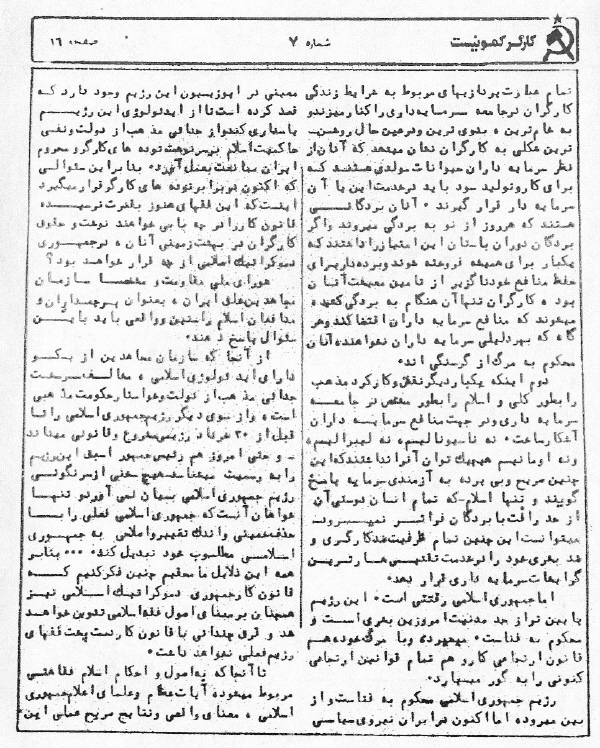 کارگر کمونیست
شماره ۷
صفحه ۱٦
تمام عبارت پردازیهای مربوط به شرایط زندگی
کارگران در جامعه سرمایه داری را کنار میزند و
به عام ترین ، بدوی ترین و در عین حال روشن
ترین شکلی به کارگران نشان میدهد که آنان از
نظر سرمایه داران حیوانات مولدی هستند که
برای کار و تولید سود باید در خدمت این یا آن
سرمایه دار قرار گیرند ۰ آنان بردگانی
هستند که هر روز از نو به بردگی میروند و اگر
بردگان دوران باستان این امتیاز را داشتند که
یکبار برای همیشه فروخته شوند و برده دار برای
حفظ منافع خود ناگزیر از تامین معیشت آنان
بود ، کارگران تنها آن هنگام به بردگی کشیده
میشوند که منافع سرمایه داران اقتضا کند و هر
گاه که بهر دلیلی سرمایه داران نخواهند آنان
محکوم به مرگ از گرسنگی اند۰
دوم اینکه یکبار دیگر نقش و کارکرد مذهب
را بطور کلی و اسلام را بطور مشخص در جامعه
سرمایه داری و در جهت منافع سرمایه داران
آشکار ساخت۰ نه ناسیونالیسم، نه لیبرالیسم،
و نه اومانیسم هیچیک توان آنرا نداشتند که این
چنین صریح و بی پرده به آزمندی سرمایه پاسخ
گویند و تنها اسلام ـ که تمام انسان دوستی آن
از حد رافت با بردگان فراتر نمیرود ـ
میتوانست این چنین تمام ظرفیت ضد کارگری و
ضد بشری خود را در خدمت تثبیت هارترین
گرایشات سرمایه داری قرار دهد۰
اما جمهوری اسلامی رفتنی است ۰ این رژیم
پا بین تر از حد مدنیت امروزین بشری است و
محکوم به فناست ۰ میمیرد و با مرگ خود هم
قانون ارتجاعی کار و هم تمام قوانین ارتجاعی
کنونی را به گور میسپارد۰
رژیم جمهوری اسلامی محکوم به فناست و از
بین میرود، اما اکنون فرا بران نیروی سیاسی
معینی در اپوزیسیون این رژیم وجود دارد که
قصد کرده است تا از ایدئولوژی این رژیم
پاسداری کند و از جدائی مذهب از دولت و نفی
حاکمیت اسلام بر سرنوشت توده های کارگر و محروم
ایران ممانعت بعمل آورد۰ بنا براین سئوالی
که اکنون در برابر توده های کارگر قرار میگیرد
اینست که این فقهای هنوز بقدرت نرسیده
قانون کار را بر چه پایه میخواهند نوشت و حقوق
کارگران در بهشت زمینی آنان ، در جمهوری
دموکراتیک اسلامی از چه قرار خواهد بود ؟
شورای ملی مقاومت و مشخصا سازمان
مجاهدین خلق ایران ، بعنوان پرچمداران و
مدافعان اسلام راستین و واقعی باید باین
سئوال پاسخ دهند۰
از آنجا که سازمان مجاهدین از یکسو
دارای ایدئولوژی اسلامی ، مخالف سرسخت
جدائی مذهب از دولت و خواستار حکومت مذهبی
است ، و از سوی دیگر رژیم جمهوری اسلامی را تا
قبل از ۳۰ خرداد رژیمی مشروع و قانونی میداند
ـ و حتی امروز هم رئیس جمهور اسبق این رژیم
را به رسمیت میشناسد ـ هیچ سخنی از سرنگونی
رژیم جمهوری اسلامی بمیان نمی آورد و تنها
خواهان آنست که جمهوری اسلامی فعلی را با
حذف خمینی و اندک تغییر و اصلاحی به جمهوری
اسلامی مطلوب خود تبدیل کند۰ ۰۰۰ بنابر
همه این دلایل ما محقیم چنین فکر کنیم که
قانون کار جمهوری دموکراتیک اسلامی نیز
همچنان بر مبنای اصول فقه اسلامی تدوین خواهد
شد و فرق چندانی با قانون کار دست پخت فقهای
رژیم فعلی نخواهد داشت۰
تا آنجا که به اصول و احکام اسلام فقاهتی
مربوط میشود، آیات عظام و علمای اعلام جمهوری
اسلامی ، معنای واقعی و نتایج صریح عملی این